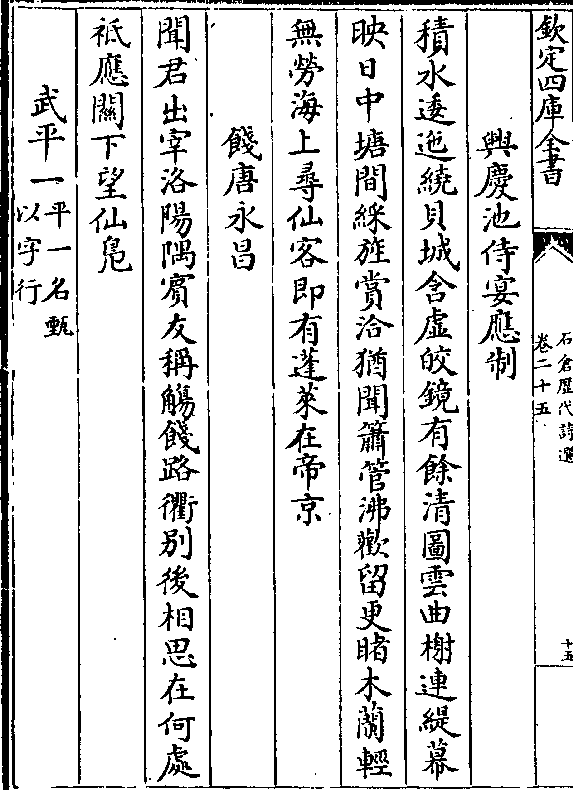 欽定四庫全書
石倉歷代詩選
卷二十五
十五
興慶池侍宴應制
積水逶迤繞貝城含虛皎鏡有餘清圖雲曲榭連緹幕
映日中塘間綵旌賞洽猶聞簫管沸歡留更睹木蘭輕
無勞海上尋仙客即有蓬萊在帝京
餞唐永昌
聞君出宰洛陽隅賓友稱觴餞路衢別後相思在何處
祗應闕下望仙鳧
武平一平一名甄以字行